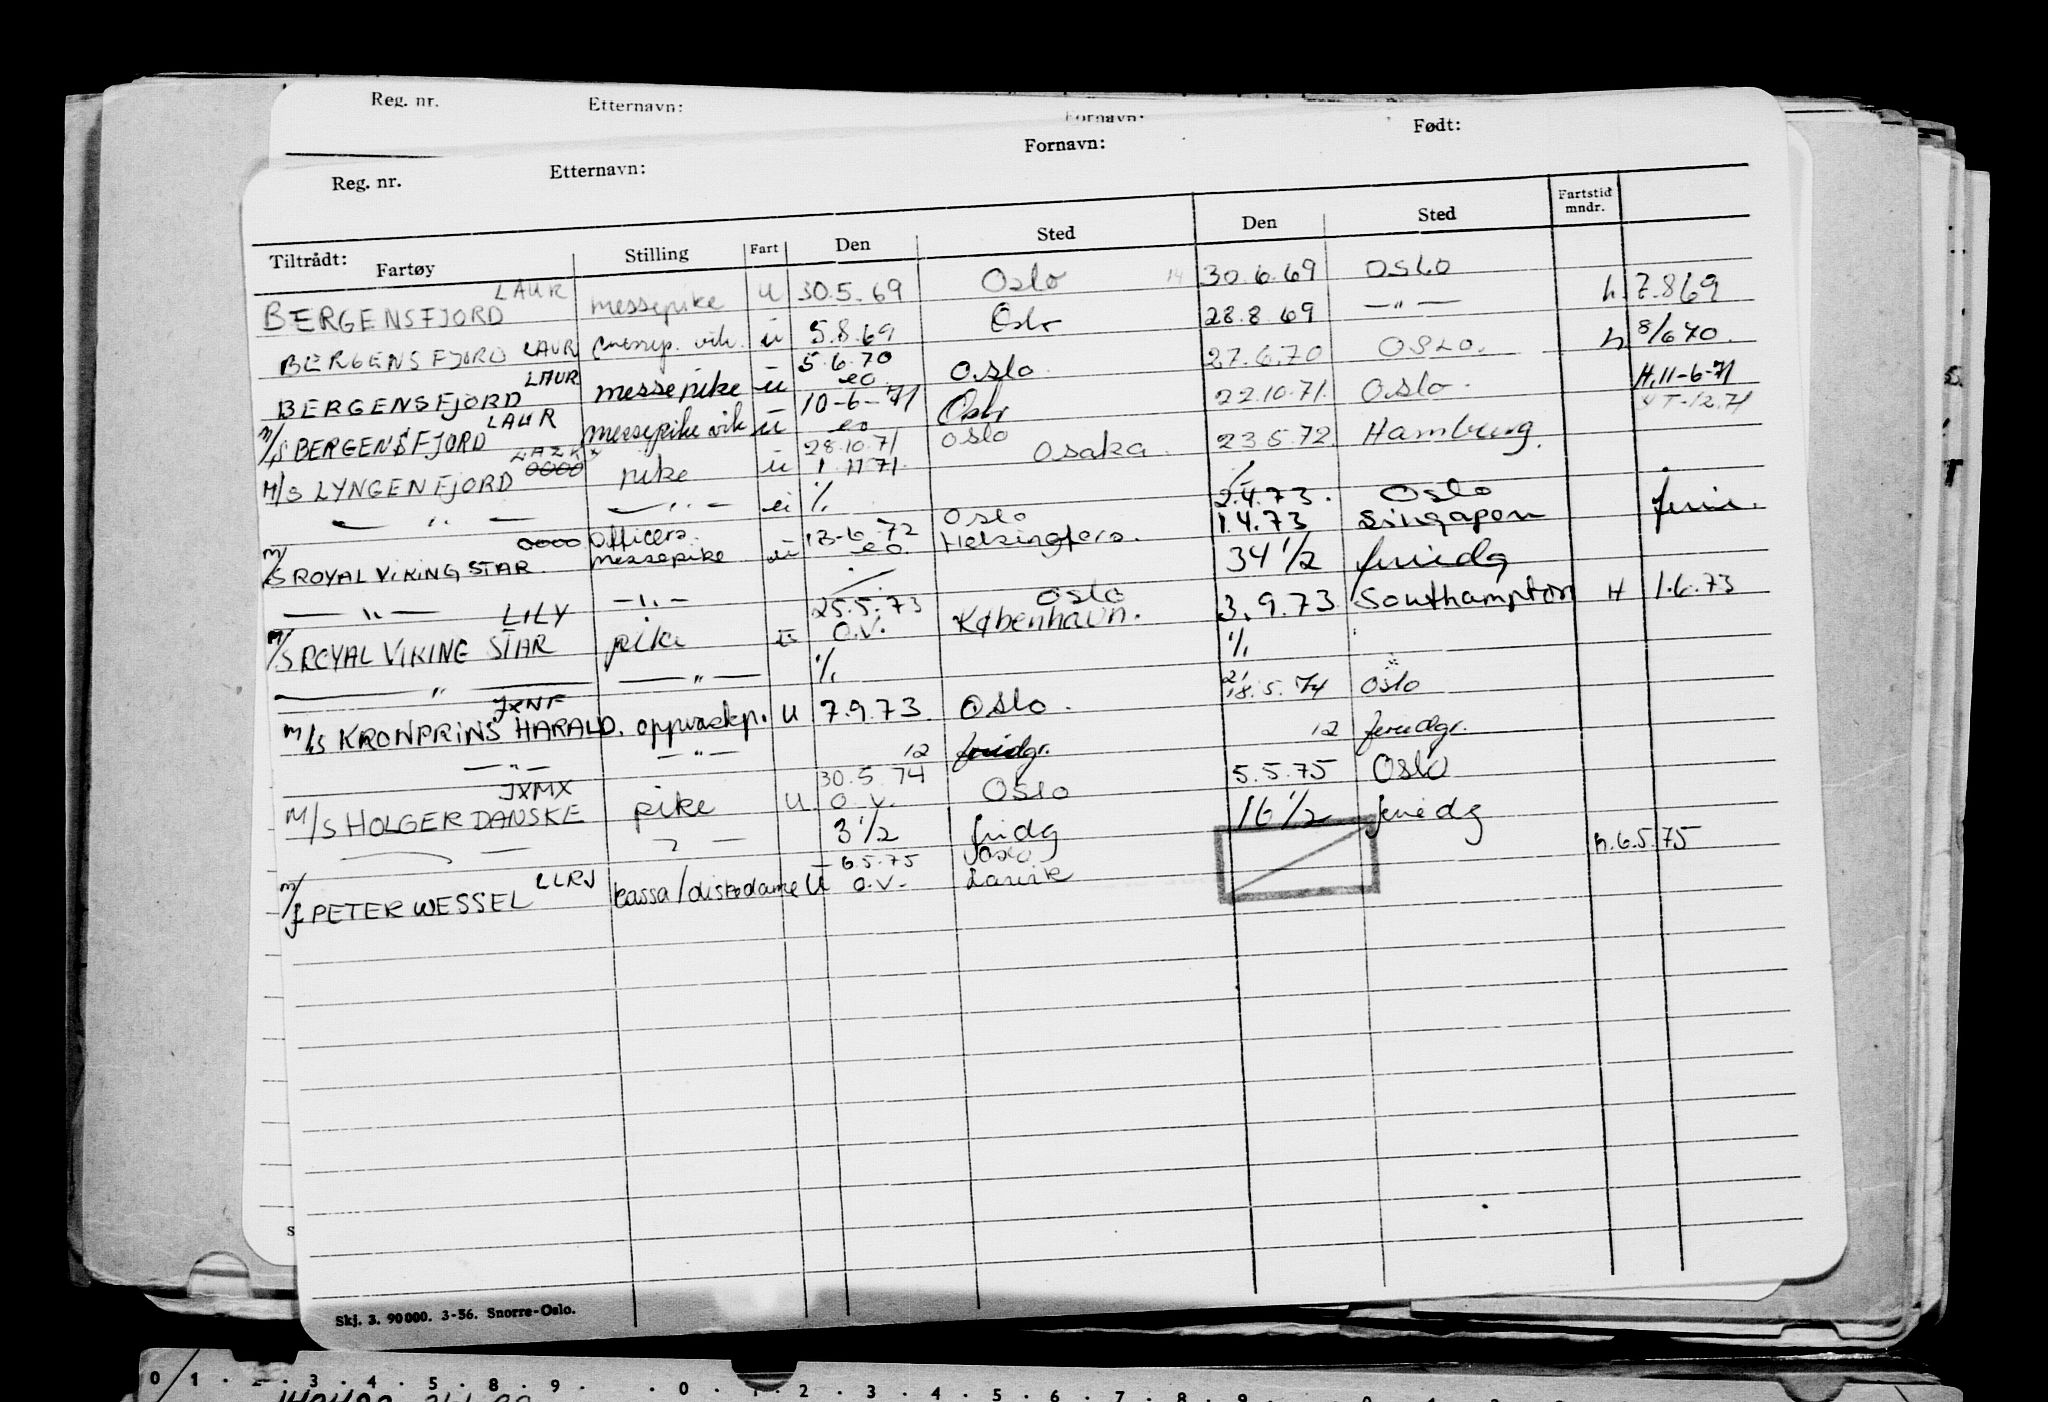 Reg. nr. Etternavn: Fornavn:
Reg. nr. Etternavn: Fornavn: Født:
Tiltrådt: Fartøy Stilling Fart Den Sted Den Sted Fartstid mndr.
BERGENSFJORD LAUR messepike u 30.5.69 Oslo 14 30.6.69 OSLO
BERGENSFJORD LAUR vik. u 5.8.69 Oslo 28.8.69 —"— h. 7.8 69
BERGENSFJORD LAUR messepike u 5.6.70 eo Oslo 27.6.70 OSLO. h 8/6 70.
M/S BERGENSFJORD LAUR messepike vik u 10-6-71 eo Oslo 22.10.71. Oslo. H.11-6-71
M/S LYNGENFJORD pike u 28.10.71 1.11.71. Oslo Osaka. 23.5.72. Hamburg.
— " — — " — u ⁒ 2.4.73. Oslo
M/S ROYAL VIKING STAR 0000 Officers messepike u 13-6-72 eo. Oslo Helsingfors. 1.4.73 Singapon
— " — — " — 34 1/2 feriedg
M/S ROYAL VIKING STAR LILY pike u 25.5.73 O.V. Oslo København. 3.9.73 Southampton H 1.6.73
— " — — " — ⁒ ⁒
M/S KRONPRINS HARALD. JXNF oppvaskp. u 7.9.73 Oslo. 18.5.74 Oslo
— " — — " — 12 feriedgr. 12 feriedgr.
M/S HOLGER DANSKE JXMX pike u. 30.5.74 O.V. Oslo 5.5.75 Oslo
3 1/2 fridg 16 1/2 feriedg
M/f PETER WESSEL LLRJ kassa/diskedame U 6.5.75 O.V. Oslo Larvik h.6.5.75
Skj. 3. 90000. 3-56. Snorre-Oslo.
0 1 . 2 . 3 . 4 . 5 . 8 . 9 . . 0 . 1 . 2 . 3 . 4 . 5 . 6 . 7 . 8 . 9